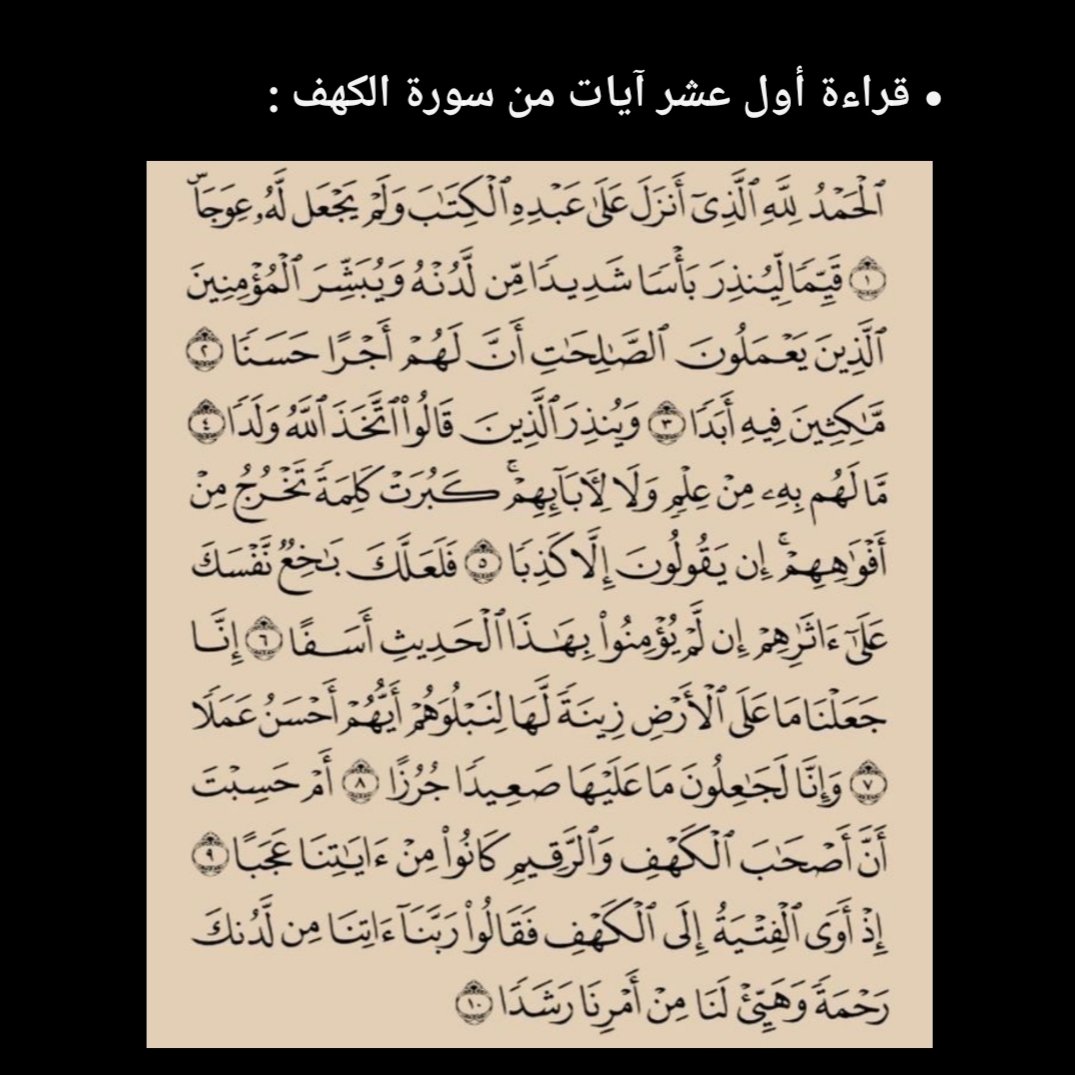 • قراءة أول عشر آيات من سورة الكهف :
ٱلْحَمْدُ لِلَّهِ ٱلَّذِىٓ أَنزَلَ عَلَىٰ عَبْدِهِ ٱلْكِتَـٰبَ وَلَمْ يَجْعَل لَّهُۥ عِوَجَاۜ
١ قَيِّمًا لِّيُنذِرَ بَأْسًا شَدِيدًا مِّن لَّدُنْهُ وَيُبَشِّرَ ٱلْمُؤْمِنِينَ
ٱلَّذِينَ يَعْمَلُونَ ٱلصَّـٰلِحَـٰتِ أَنَّ لَهُمْ أَجْرًا حَسَنًا ٢
مَّـٰكِثِينَ فِيهِ أَبَدًا ٣ وَيُنذِرَ ٱلَّذِينَ قَالُوا۟ ٱتَّخَذَ ٱللَّهُ وَلَدًا ٤
مَّا لَهُم بِهِۦ مِنْ عِلْمٍ وَلَا لِـَٔابَآئِهِمْ ۚ كَبُرَتْ كَلِمَةً تَخْرُجُ مِنْ
أَفْوَٰهِهِمْ ۚ إِن يَقُولُونَ إِلَّا كَذِبًا ٥ فَلَعَلَّكَ بَـٰخِعٌ نَّفْسَكَ
عَلَىٰٓ ءَاثَـٰرِهِمْ إِن لَّمْ يُؤْمِنُوا۟ بِهَـٰذَا ٱلْحَدِيثِ أَسَفًا ٦ إِنَّا
جَعَلْنَا مَا عَلَى ٱلْأَرْضِ زِينَةً لَّهَا لِنَبْلُوَهُمْ أَيُّهُمْ أَحْسَنُ عَمَلًا
٧ وَإِنَّا لَجَـٰعِلُونَ مَا عَلَيْهَا صَعِيدًا جُرُزًا ٨ أَمْ حَسِبْتَ
أَنَّ أَصْحَـٰبَ ٱلْكَهْفِ وَٱلرَّقِيمِ كَانُوا۟ مِنْ ءَايَـٰتِنَا عَجَبًا ٩
إِذْ أَوَى ٱلْفِتْيَةُ إِلَى ٱلْكَهْفِ فَقَالُوا۟ رَبَّنَآ ءَاتِنَا مِن لَّدُنكَ
رَحْمَةً وَهَيِّئْ لَنَا مِنْ أَمْرِنَا رَشَدًا ١٠